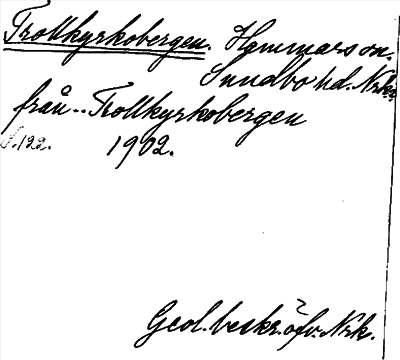 Trollkyrkobergen. Hammars sn.
Sundbo hd. Nrke
från .. Trollkyrkobergen
s. 122. 1902.
Geol. beskr. öfv. Nrk.